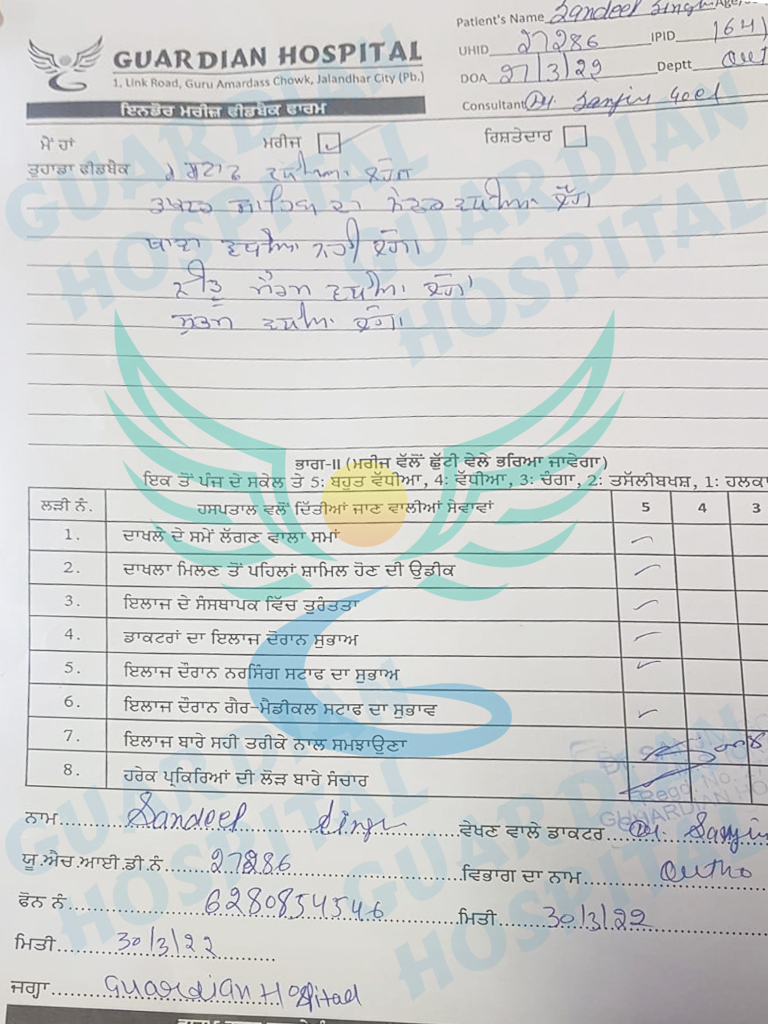 Patient's Name Sandeep Singh Age/
GUARDIAN HOSPITAL
UHID 27286 IPID 1641
1, Link Road, Guru Amardass Chowk, Jalandhar City (Pb.)
DOA 27/3/22 Deptt Ortho
ਇਨਡੋਰ ਮਰੀਜ਼ ਫੀਡਬੈਕ ਫਾਰਮ
Consultant Dr. Sanjiv Goel
ਮੈਂ ਹਾਂ ਮਰੀਜ਼ ਰਿਸ਼ਤੇਦਾਰ
ਤੁਹਾਡਾ ਫੀਡਬੈਕ ਸਟਾਫ ਵਧੀਆ
ਦਾ ਵਧੀਆ ਹੈਗਾ
ਖਾਣਾ ਵਧੀਆ ਨਹੀ ਹੈਗਾ
ਵਧੀਆ ਹੈਗਾ
ਵਧੀਆ ਹੈਗਾ
ਭਾਗ-II (ਮਰੀਜ਼ ਵੱਲੋਂ ਛੁੱਟੀ ਵੇਲੇ ਭਰਿਆ ਜਾਵੇਗਾ)
ਇਕ ਤੋਂ ਪੰਜ ਦੇ ਸਕੇਲ ਤੇ 5: ਬਹੁਤ ਵੱਧੀਆ, 4: ਵੱਧੀਆ, 3: ਚੰਗਾ, 2: ਤਸੱਲੀਬਖਸ਼, 1: ਹਲਕਾ
ਲੜੀ ਨੰ. ਹਸਪਤਾਲ ਵਲੋਂ ਦਿੱਤੀਆਂ ਜਾਣ ਵਾਲੀਆਂ ਸੇਵਾਵਾਂ 5 4 3
1. ਦਾਖਲੇ ਦੇ ਸਮੇਂ ਲੱਗਣ ਵਾਲਾ ਸਮਾਂ
2. ਦਾਖਲਾ ਮਿਲਣ ਤੋਂ ਪਹਿਲਾਂ ਸ਼ਾਮਿਲ ਹੋਣ ਦੀ ਉਡੀਕ
3. ਇਲਾਜ ਦੇ ਸੰਸਥਾਪਕ ਵਿੱਚ ਤੁਰੰਤਤਾ
4. ਡਾਕਟਰਾਂ ਦਾ ਇਲਾਜ ਦੌਰਾਨ ਸੁਭਾਅ
5. ਇਲਾਜ ਦੌਰਾਨ ਨਰਸਿੰਗ ਸਟਾਫ ਦਾ ਸੁਭਾਅ
6. ਇਲਾਜ ਦੌਰਾਨ ਗੈਰ-ਮੈਡੀਕਲ ਸਟਾਫ ਦਾ ਸੁਭਾਵ
7. ਇਲਾਜ ਬਾਰੇ ਸਹੀ ਤਰੀਕੇ ਨਾਲ ਸਮਝਾਉਣਾ
8. ਹਰੇਕ ਪ੍ਰਕਿਰਿਆਂ ਦੀ ਲੋੜ ਬਾਰੇ ਸੰਚਾਰ
Regd. No.
GUARDIAN HO
ਨਾਮ Sandeep Singh ਵੇਖਣ ਵਾਲੇ ਡਾਕਟਰ Dr. Sanjiv
ਯੂ.ਐਚ.ਆਈ.ਡੀ.ਨੰ 27286 ਵਿਭਾਗ ਦਾ ਨਾਮ Ortho
ਫੋਨ ਨੰ 6280854546 ਮਿਤੀ 30/3/22
ਮਿਤੀ 30/3/22
ਜਗ੍ਹਾ Guardian Hospital
GUARDIAN HOSPITAL